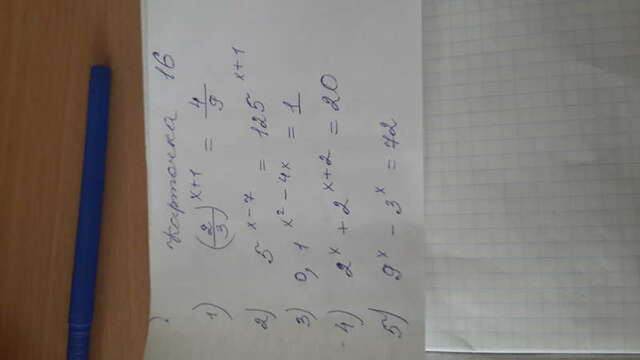 Карточка 16
1) (2/3)^(x+1) = 4/9
2) 5^(x-7) = 125^(x+1)
3) 0,1^(x²-4x) = 1
4) 2^x + 2^(x+2) = 20
5) 9^x - 3^x = 72